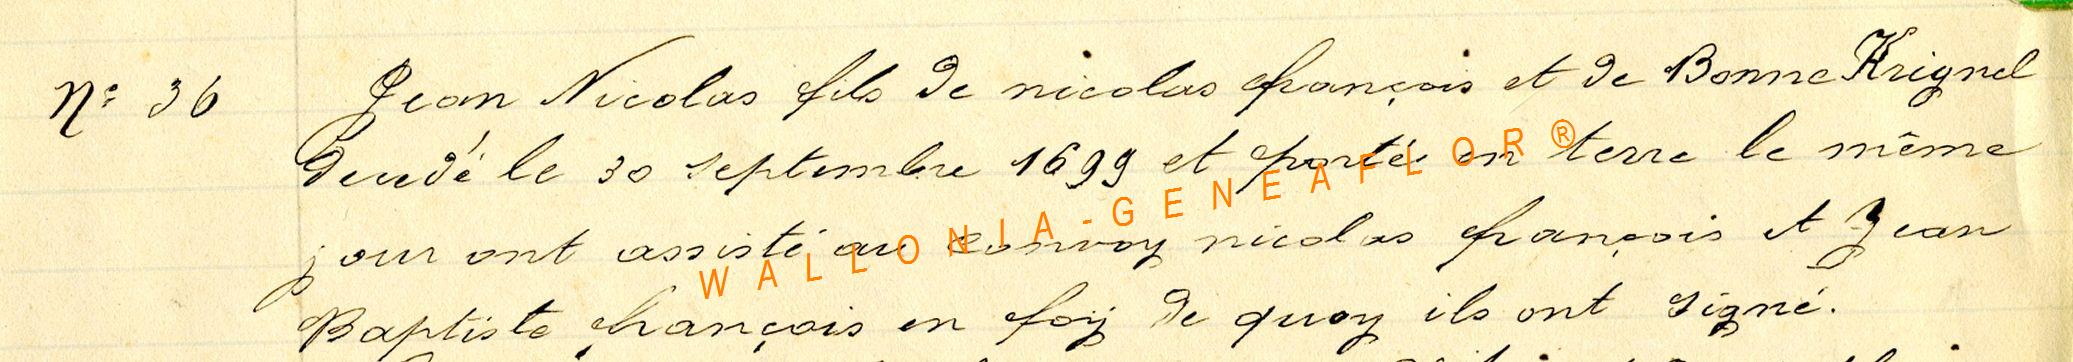 N° 36 Jean Nicolas fils de nicolas françois et de Bonne Krignel
décedé le 30 septembre 1699 et porté en terre le même
jour ont assisté au convoy nicolas françois et Jean
Baptiste françois en foy de quoy ils ont signé.
WALLONIA-GENEAFLOR®